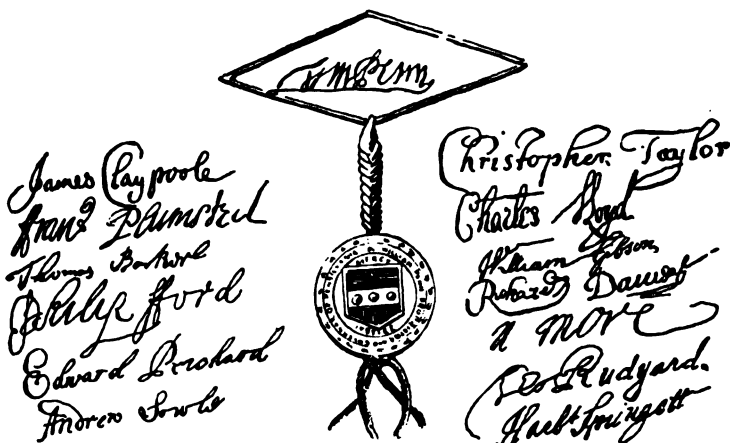 Wm Penn
James Claypoole
Franc Plumsted
Thomas Barker
Philip Ford
Edward Prichard
Andrew Sowle
Christopher Taylor
Charles Lloyd
William Gibson
Richard Davies
N More
Geo Rudyard
Harbt Springett